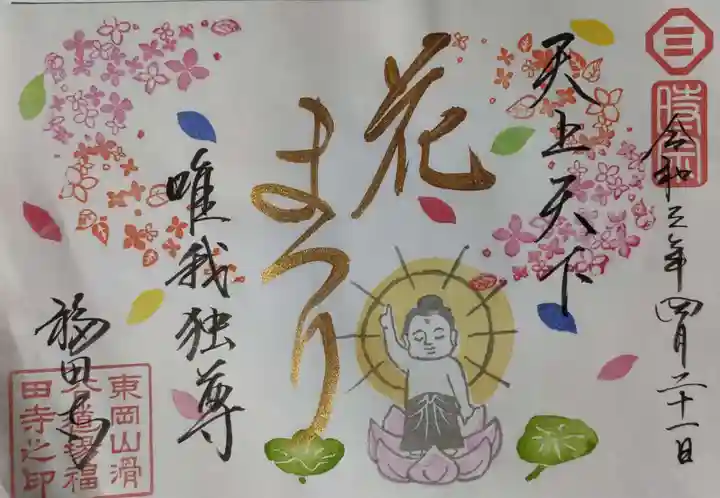 三
時宗
令和三年四月二十一日
天上天下
花
まつり
唯我独尊
福田寺
東岡山滑
道場福
田寺之印